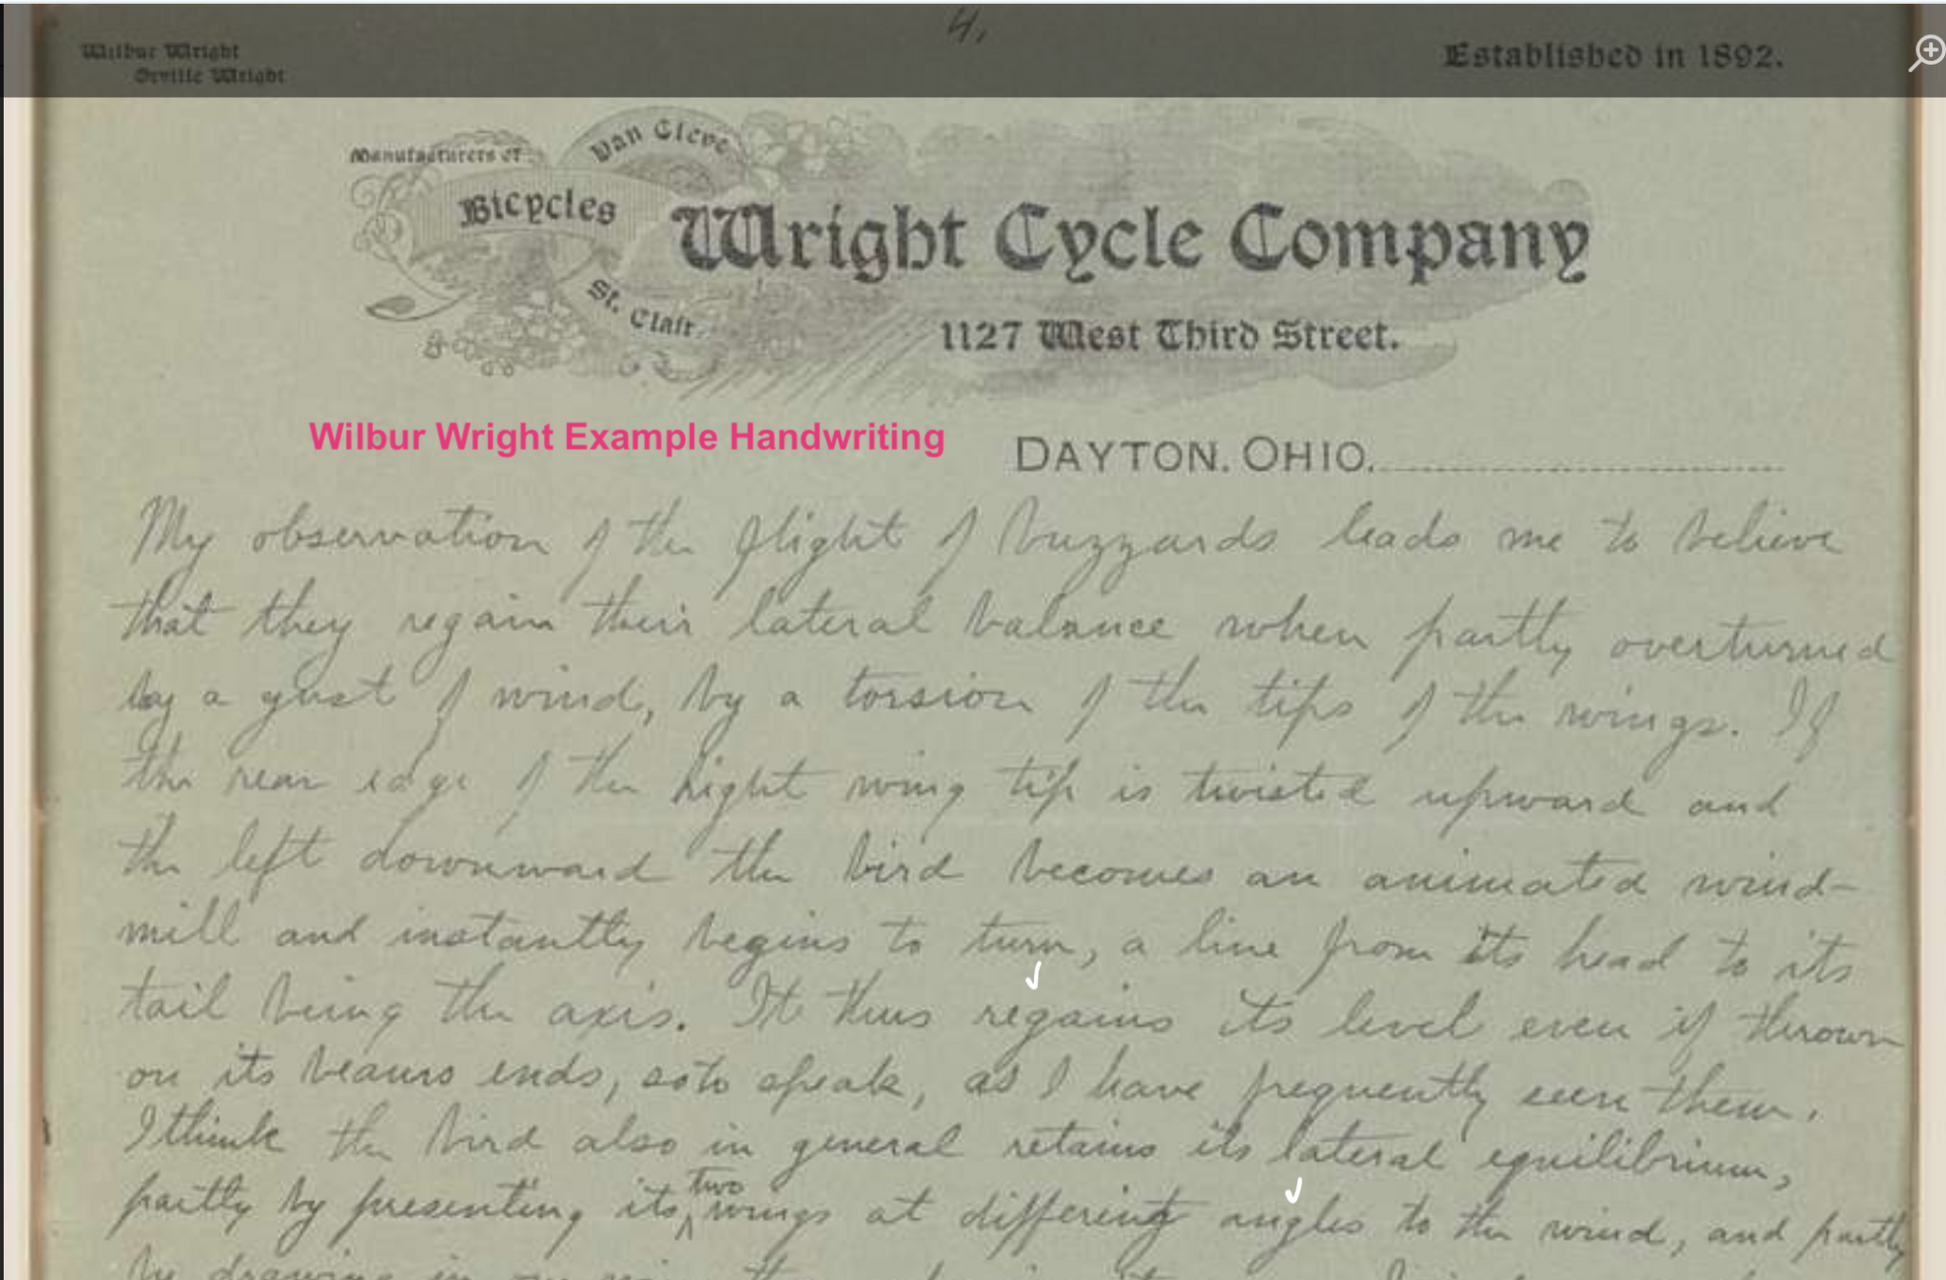 4,
Wilbur Wright
Orville Wright
Established in 1892.
Manufacturers of
Van Cleve
Bicycles
St. Clair
Wright Cycle Company
1127 West Third Street.
Wilbur Wright Example Handwriting
DAYTON, OHIO,
My observation of the flight of buzzards leads me to believe
that they regain their lateral balance when partly overturned
by a gust of wind, by a torsion of the tips of the wings. If
the rear edge of the right wing tip is twisted upward and
the left downward the bird becomes an animated wind-
mill and instantly begins to turn, a line from its head to its
tail being the axis. It thus regains its level even if thrown
on its beams ends, so to speak, as I have frequently seen them.
I think the bird also in general retains its lateral equilibrium,
partly by presenting its two wings at differing angles to the wind, and partly
by drawing in one